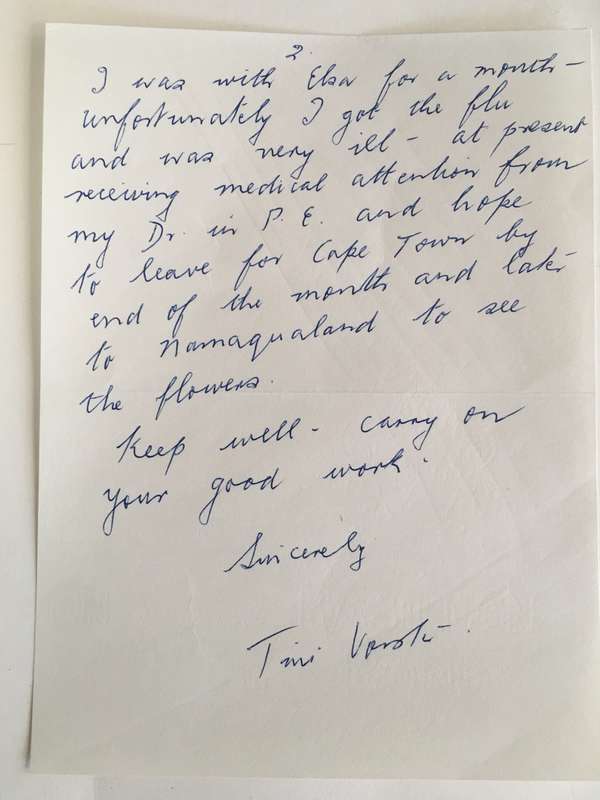 2.
I was with Elsa for a month -
unfortunately I got the flu
and was very ill - at present
receiving medical attention from
my Dr. in P. E. and hope
to leave for Cape Town by
end of the month and later
to Namaqualand to see
the flowers.
Keep well - carry on
your good work.
Sincerely
Tini